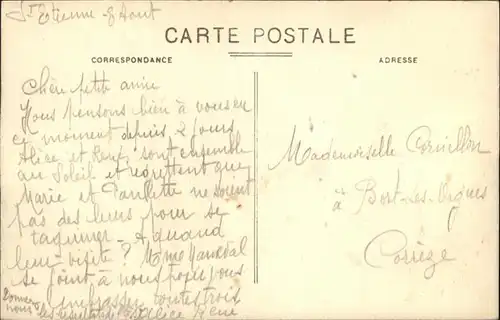 St Etienne 8 Aout
CARTE POSTALE
CORRESPONDANCE
ADRESSE
Chère petite amie
Nous pensons bien à vous en
ce moment depuis 2 jours
Alice et René sont ensemble
au Soleil et regrettent que
Marie et Paulette ne soient
pas des leurs pour se
taquiner. A quand
leur visite? Mme
se joint à nous pour vous
embrasser toutes trois
Donnez
nous
Alice René
Mademoiselle Cornillon
à Bort-les-Orgues
Corrèze